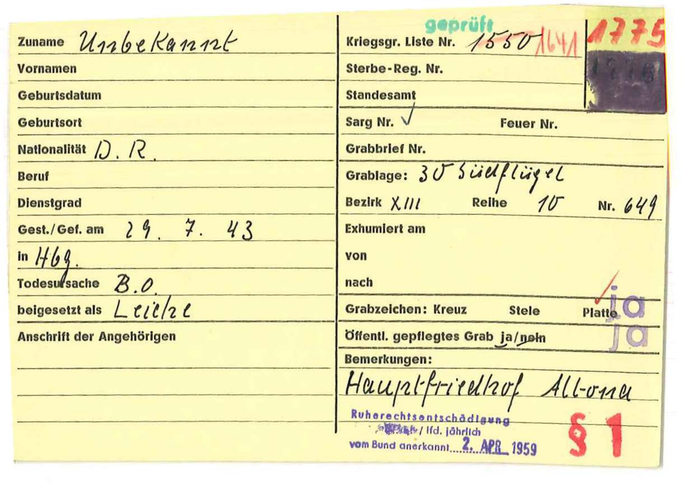 geprüft
Zuname Unbekannt
Vornamen
Geburtsdatum
Geburtsort
Nationalität D. R.
Beruf
Dienstgrad
Gest./Gef. am 29. 7. 43
in Hbg.
Todesursache B.O.
beigesetzt als Leiche
Anschrift der Angehörigen
Kriegsgr. Liste Nr. 1550 1641
1775
Sterbe-Reg. Nr.
Standesamt
Sarg Nr. ✓ Feuer Nr.
Grabbrief Nr.
Grablage: 30 Südflügel
Bezirk XIII Reihe 10 Nr. 649
Exhumiert am
von
nach
Grabzeichen: Kreuz Stele Platte ja
Öffentl. gepflegtes Grab ja/nein ja
Bemerkungen:
Hauptfriedhof Altona
Ruherechtsentschädigung
/ lfd. jährlich
vom Bund anerkannt 2. APR 1959
§ 1